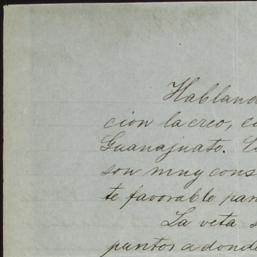 Habland
cion la creo, c
Guanajuato.
son muy cons
te favorable par
La veta s
puntos a dond